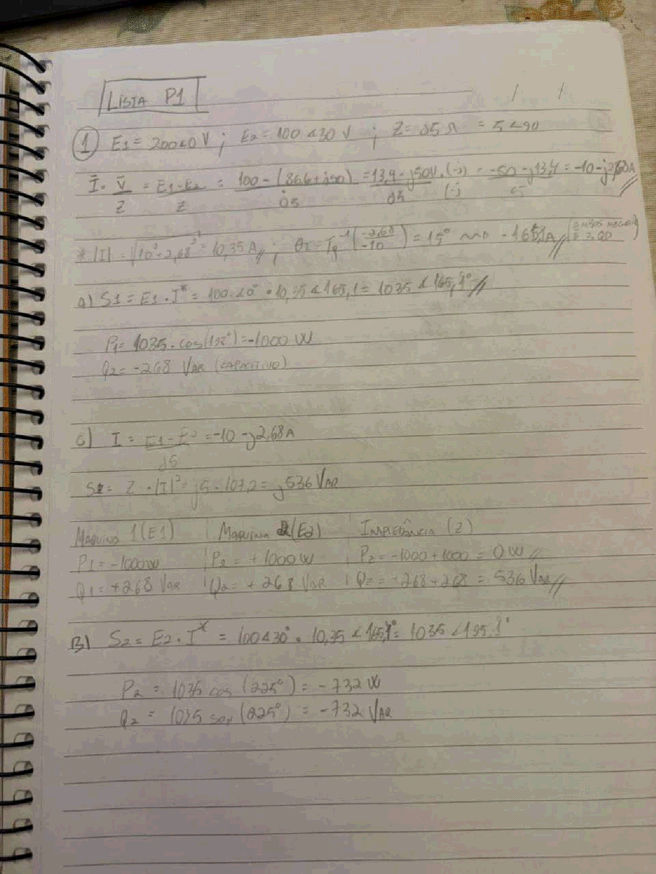 LISTA P1
① E1 = 200∠0 V ; E2 = 100∠30 V ; Z = j5 Ω = 5∠90
I = V/Z = E1-E2/Z = 100 - (86,6 + j50)/j5 = 13,4 - j50V/j5 · (-j)/(-j) = -50 - j13,4/5 = -10 - j2,68A
* |I| = √10² + 2,68² = 10,35 A ; θI = Tg⁻¹(-2,68/-10) = 15° → -165,1A
a) S1 = E1 · I* = 100∠0° · 10,35∠165,1 = 1035∠165,1°
P1 = 1035 · cos( ) = -1000 W
Q2 = -268 VAR (CAPACITIVO)
c) I = E1 - E2/j5 = -10 - j2,68A
SZ = Z · |I|² = j5 · 107,2 = j536 VAR
MÁQUINA 1 (E1) | MÁQUINA 2 (E2) | IMPEDÂNCIA (Z)
P1 = -1000W | P2 = +1000W | PZ = -1000 + 1000 = 0W
Q1 = +268 VAR | Q2 = +268 VAR | QZ = +268 + 268 = 536 VAR
B) S2 = E2 · I* = 100∠30° · 10,35∠165,1° = 1035∠195,1°
P2 = 1035 cos (225°) = -732 W
Q2 = 1035 sen (225°) = -732 VAR